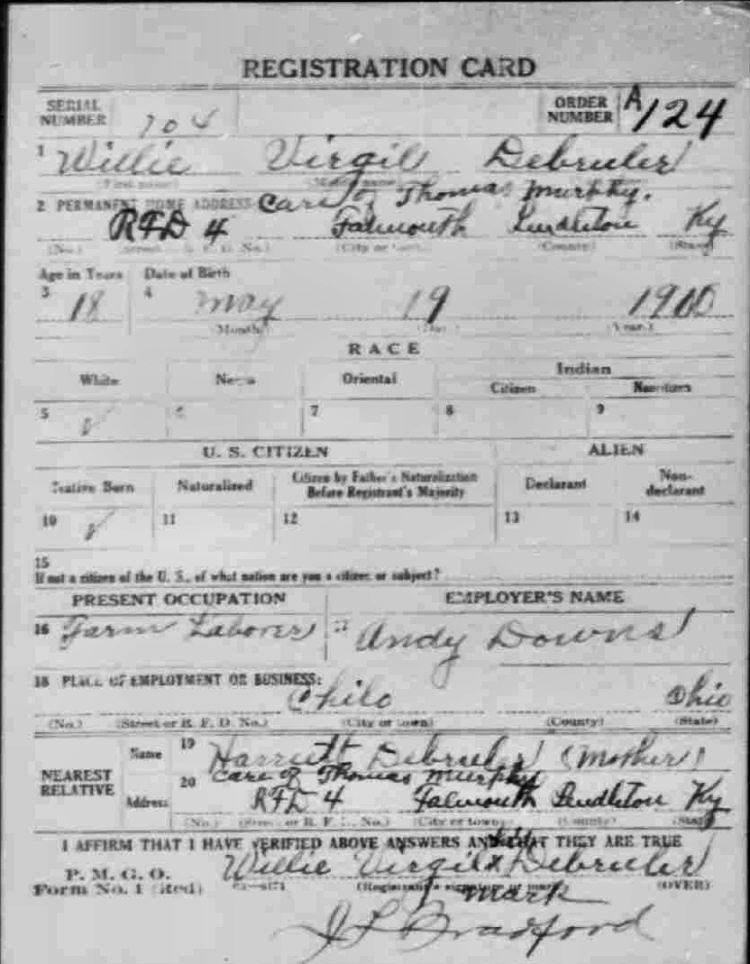 REGISTRATION CARD
SERIAL NUMBER 704 ORDER NUMBER A124
1 Willie Virgil Debruler
(First name) (Middle name)
2 PERMANENT HOME ADDRESS Care of Thomas Murphy.
RFD 4 Falmouth Pendleton Ky
(No.) (Street or R. F. D. No.) (City or town) (County) (State)
Age in Years Date of Birth
3 18 4 May 19 1900
(Month) (Day) (Year)
RACE
White Negro Oriental Indian
Citizen Noncitizen
5 ✓ 6 7 8 9
U. S. CITIZEN ALIEN
Native Born Naturalized Citizen by Father's Naturalization Before Registrant's Majority Declarant Non-declarant
10 ✓ 11 12 13 14
15
If not a citizen of the U. S., of what nation are you a citizen or subject?
PRESENT OCCUPATION EMPLOYER'S NAME
16 Farm Laborer 17 Andy Downs
18 PLACE OF EMPLOYMENT OR BUSINESS:
Chilo Ohio
(No.) (Street or R. F. D. No.) (City or town) (County) (State)
NEAREST RELATIVE Name 19 Harriett Debruler (Mother)
20 Care of Thomas Murphy
Address RFD 4 Falmouth Pendleton Ky
(No.) (Street or R. F. D. No.) (City or town) (County) (State)
I AFFIRM THAT I HAVE VERIFIED ABOVE ANSWERS AND THAT THEY ARE TRUE
P. M. G. O. Willie Virgil x Debruler
Form No. 1 (Red) (Registrant's signature or mark) (OVER)
mark
J L Bradford